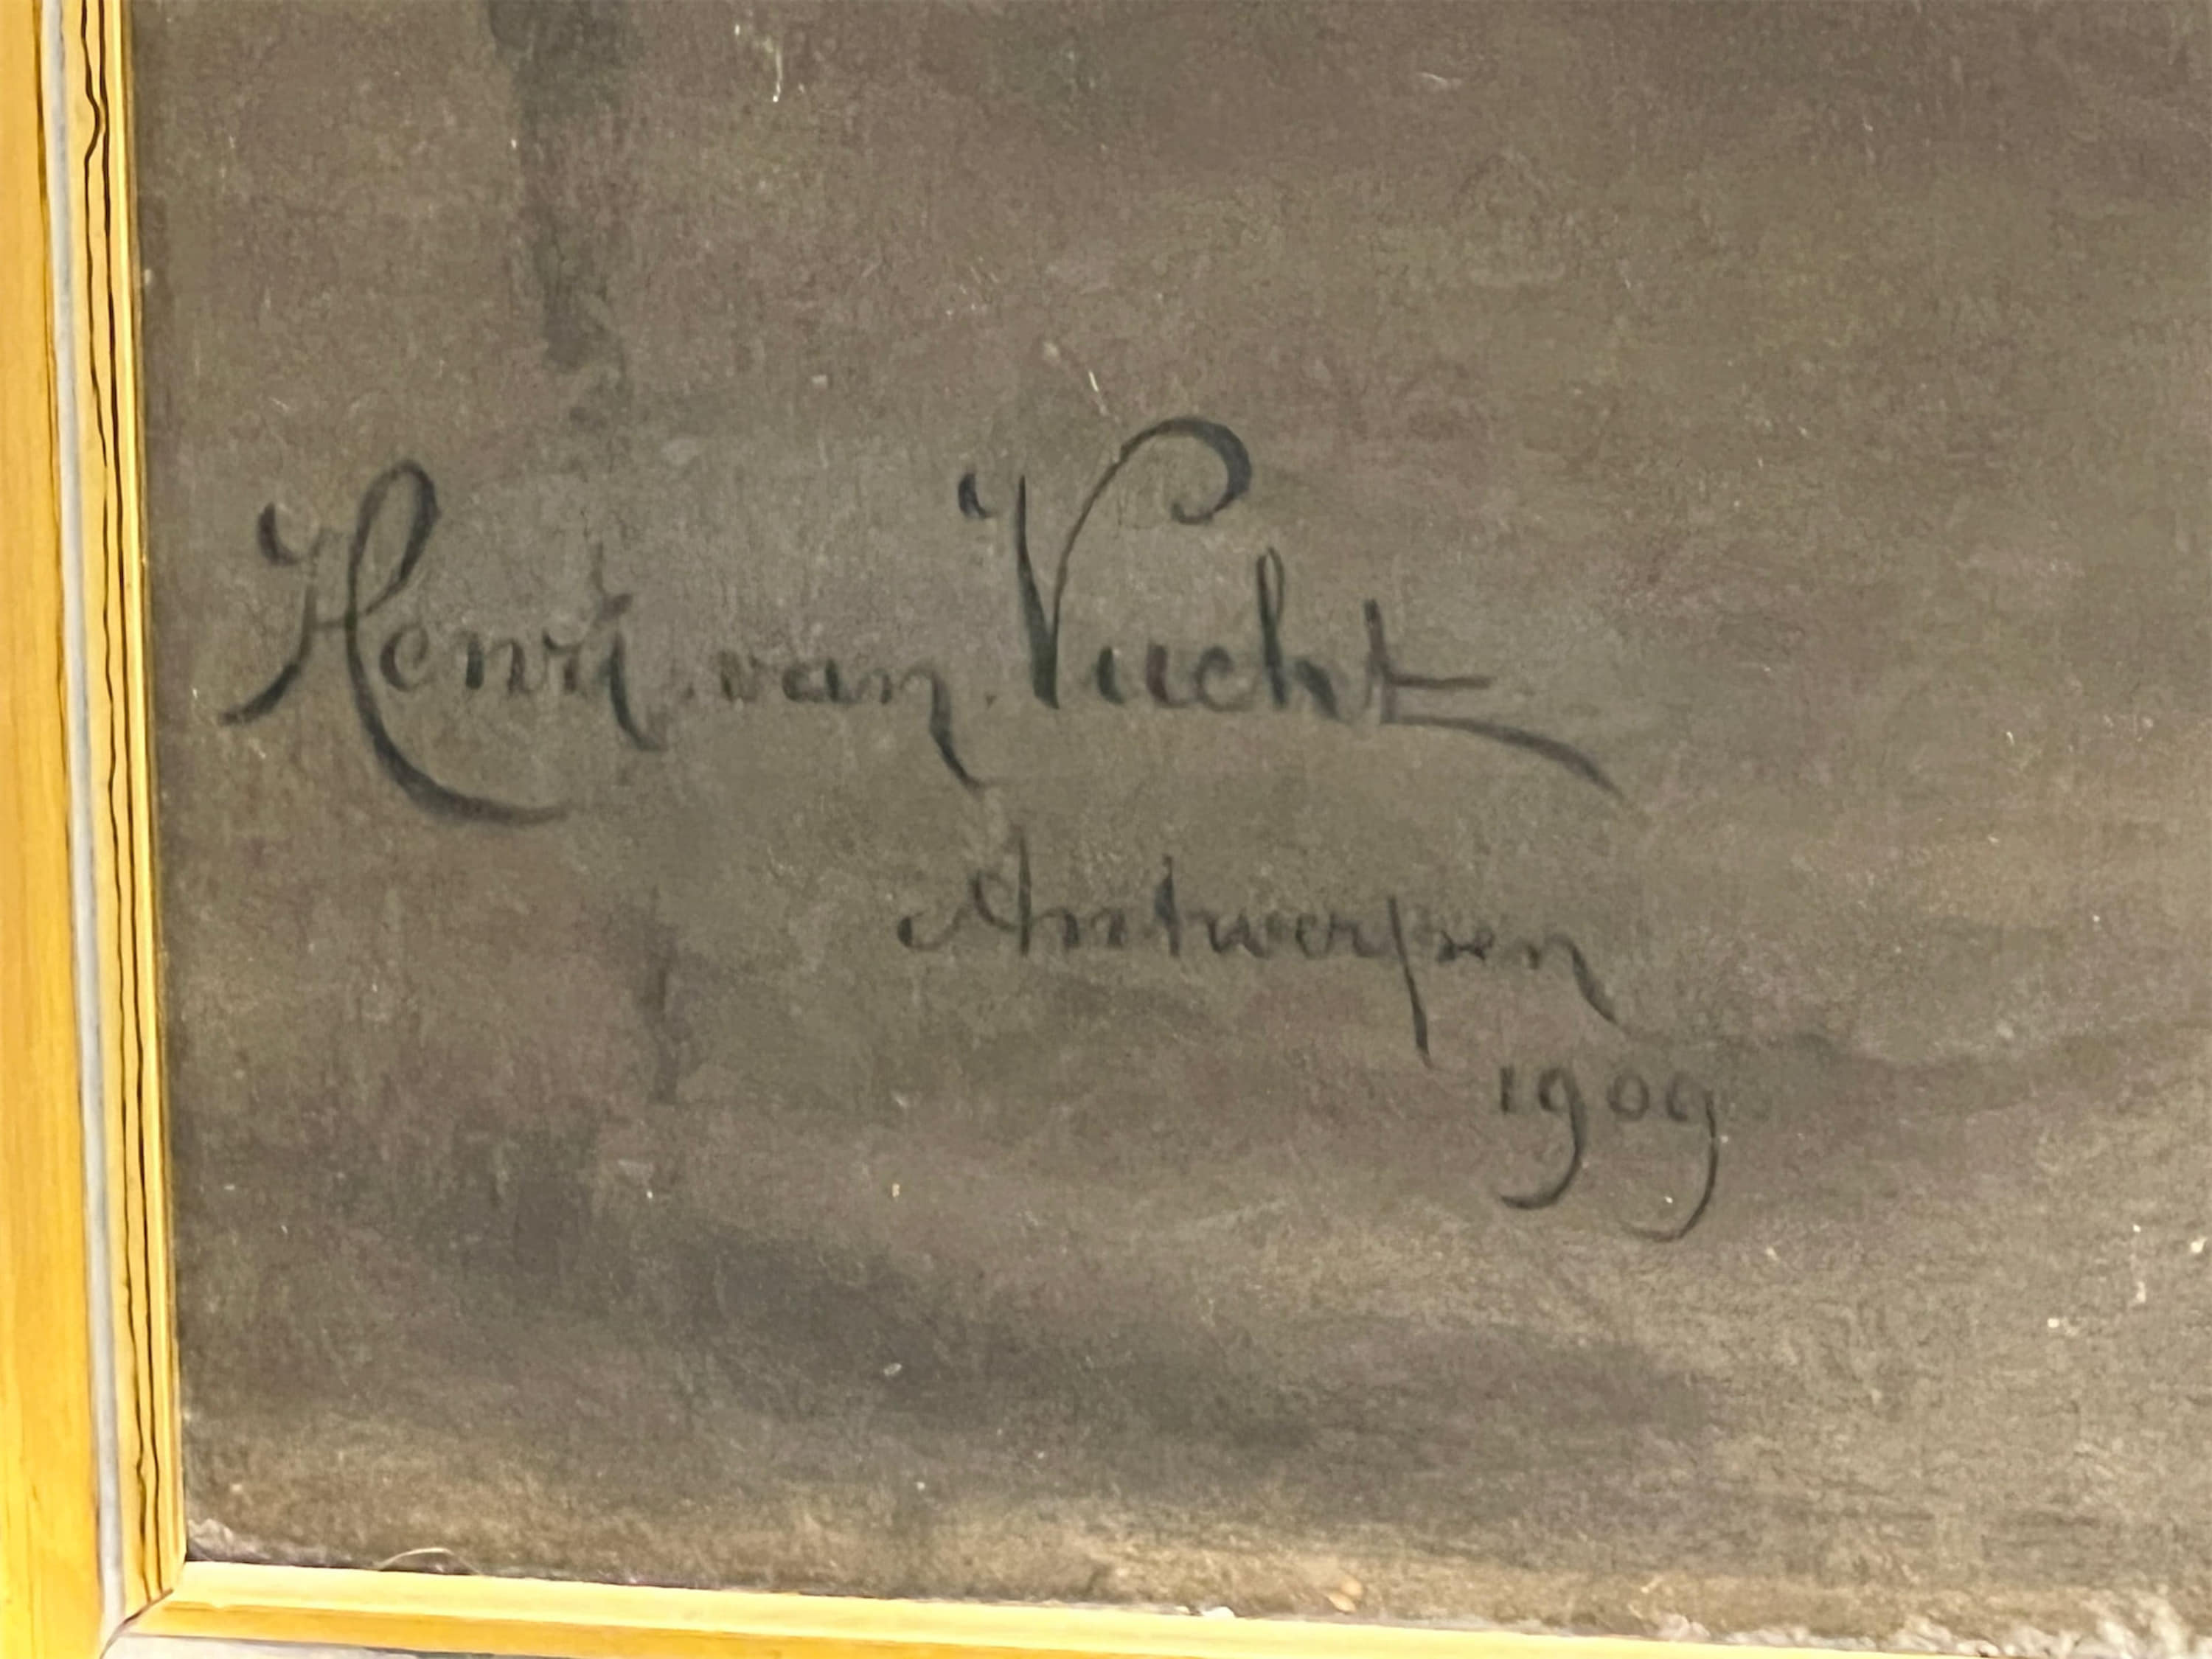 Henri van Vucht
Antwerpen
1909